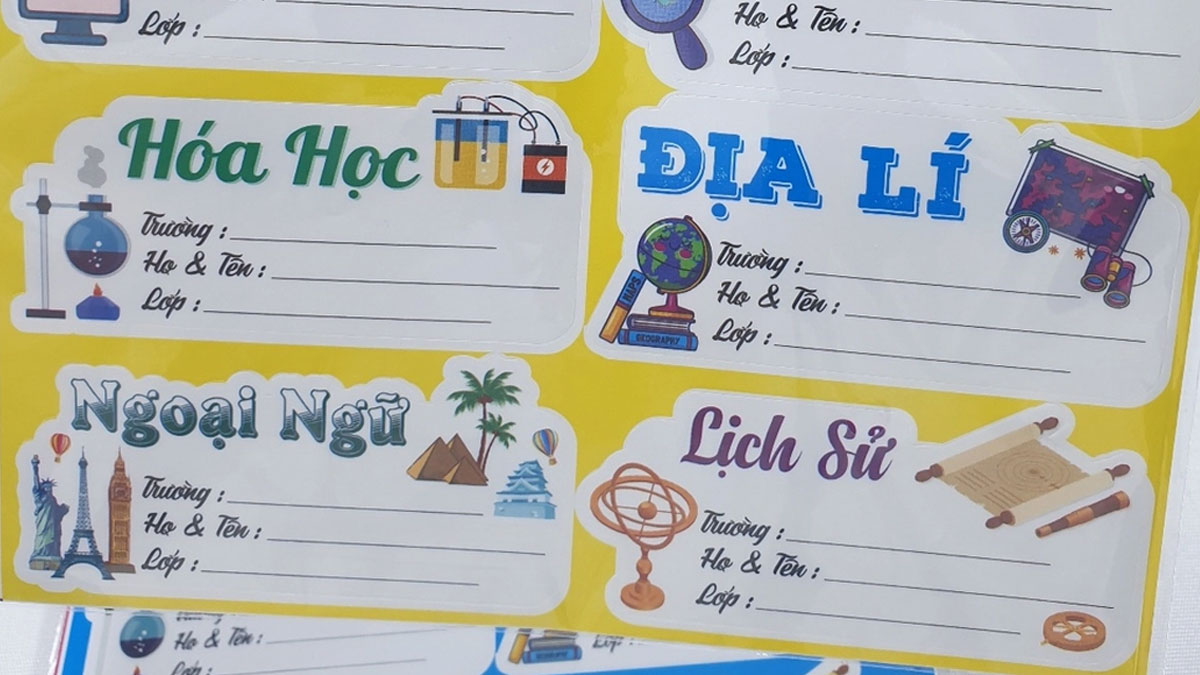 Lớp :
Họ & Tên :
Lớp :
Hóa Học
Trường :
Họ & Tên :
Lớp :
ĐỊA LÍ
MAPS
GEOGRAPHY
Trường :
Họ & Tên :
Lớp :
Ngoại Ngữ
Trường :
Họ & Tên :
Lớp :
Lịch Sử
Trường :
Họ & Tên :
Lớp :
Họ & Tên :
Lớp :
GEOGRAPHY
Lớp :